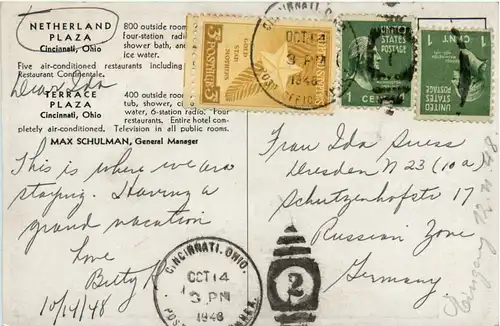 NETHERLAND
PLAZA
Cincinnati, Ohio
800 outside room
four-station radi
shower bath, and
ice water.
Five air-conditioned restaurants including
Restaurant Continentale.
Dear Ida
TERRACE
PLAZA
Cincinnati, Ohio
400 outside ro
tub, shower, ci
water, 6-station radio. Four
restaurants. Entire hotel com-
pletely air-conditioned. Television in all public rooms.
MAX SCHULMAN, General Manager
This is where we are
staying. Having a
grand vacation
Love
Betty
10/14/48
GOLD STAR MOTHERS
3¢ POSTAGE 3¢
CINCINNATI, OHIO
OCT 14
3 PM
1948
UNITED STATES POSTAGE
1 CENT 1
UNITED STATES
POSTAGE
1 CENT 1
Frau Ida Suess
Dresden N 23 (10a)
Schutzenhofstr 17
Russian Zone
Germany
CINCINNATI, OHIO.
OCT 14
3 PM
1948
2
Eingang
48